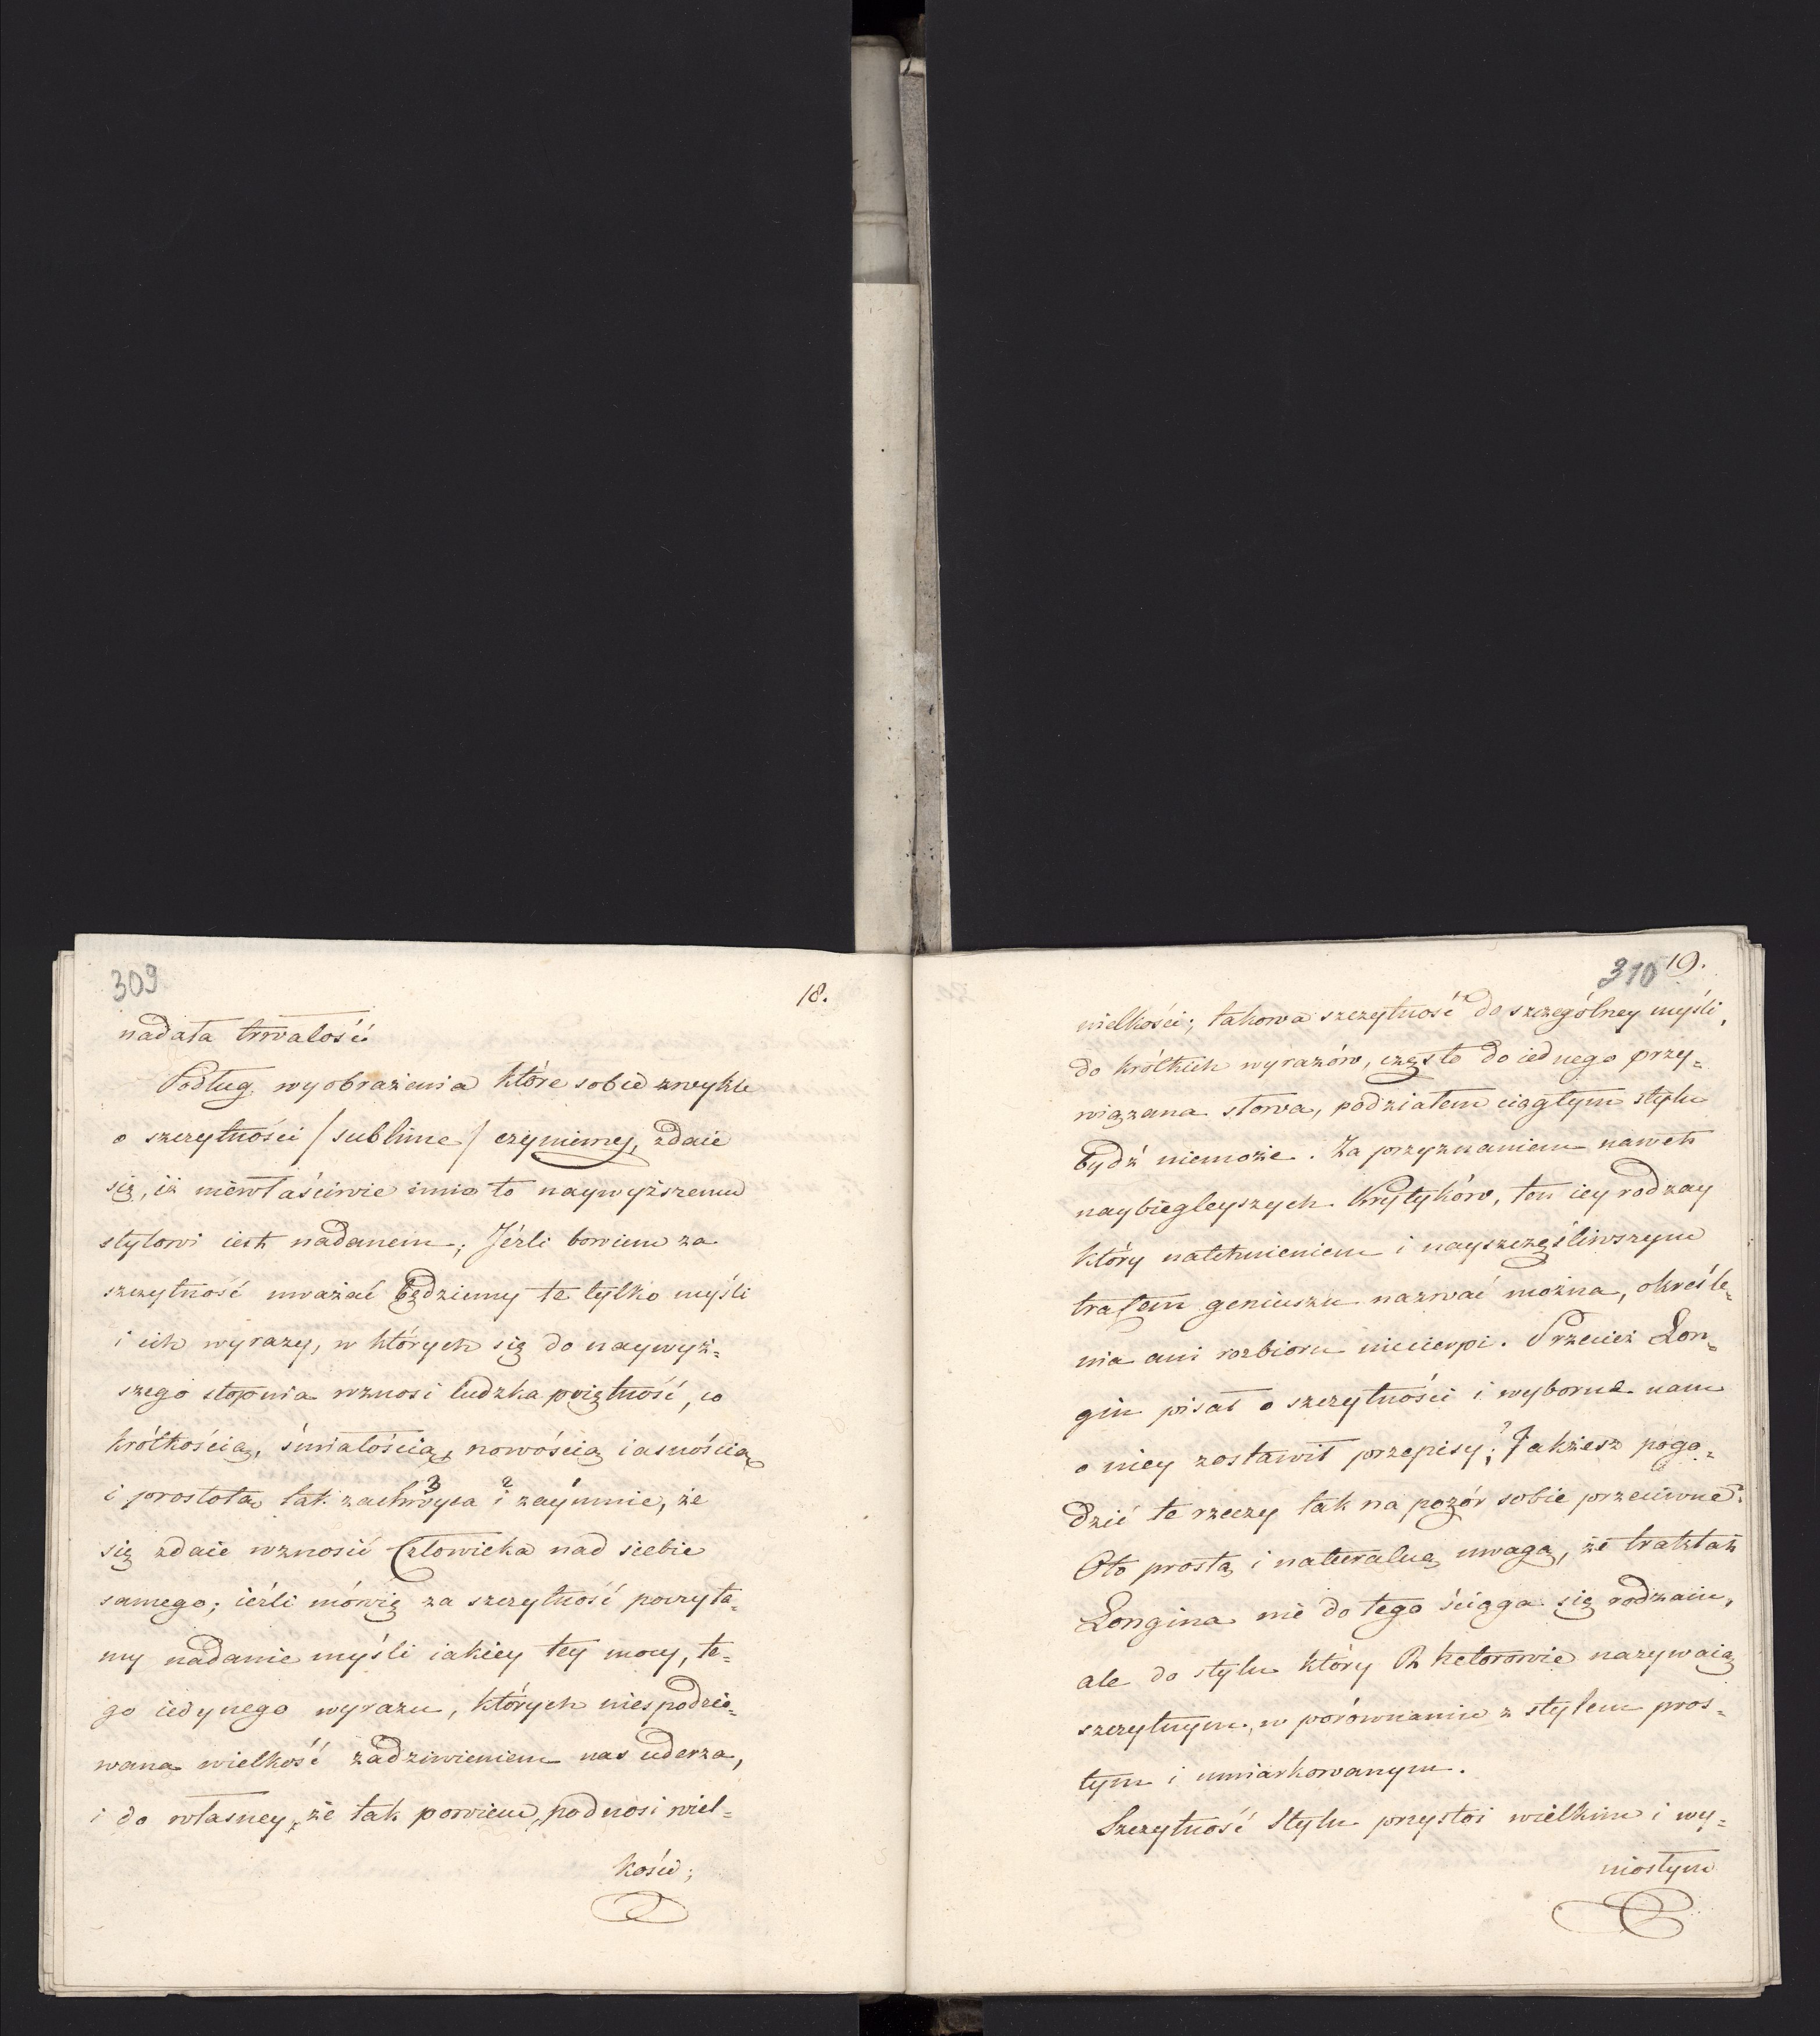 309
18.
nadała trwałość
Podług wyobrażenia które sobie zwykle
o szczytności /sublime/ czynimy, zdaie
się, iż niewłaściwie imie to naywyższemu
stylowi iest nadanem; Jeźli bowiem za
szczytność uważać będziemy te tylko myśli
i ich wyrazy, w których się do naywyż=
szego stopnia wznosi ludzka poiętność, co
krótkością, śmiałością, nowością iasnością
i prostotą tak zachwyca i zaymuie, że
się zdaie wznosić Człowieka nad siebie
samego; ieźli mówię za szczytność poczyta=
my nadanie myśli iakiey tey mocy, te=
go iedynego wyrazu, których niespodzie=
wana wielkość zadziwieniem nas uderza,
i do własney, że tak powiem, podnosi wiel=
kości;
310 19.
wielkości; takowa szczytność do szczególney myśli,
do krótkich wyrazów, często do iednego przy=
wiązana słowa, podziałem ciągłym stylu
bydź niemoże. Za przyznaniem nawet
naybiegleyszych Krytyków, ton iey rodzay
który natchnieniem i nayszczęśliwszym
trafem geniuszu nazwać można, określe=
nia ani rozbioru niecierpi. Przecież Lon=
gin pisał o szczytności i wyborne nam
o niey zostawił przepisy; Jakżesz pogo=
dzić te rzeczy tak na pozór sobie przeciwne?
Oto prostą i naturalną uwagą, że traktat
Longina nie do tego ściąga się rodzaiu,
ale do stylu który Rhetorowie nazywaią
szczytnym, w porównaniu z stylem pros=
tym i umiarkowanym.
Szczytność Stylu przystoi wielkim i wy=
niosłym